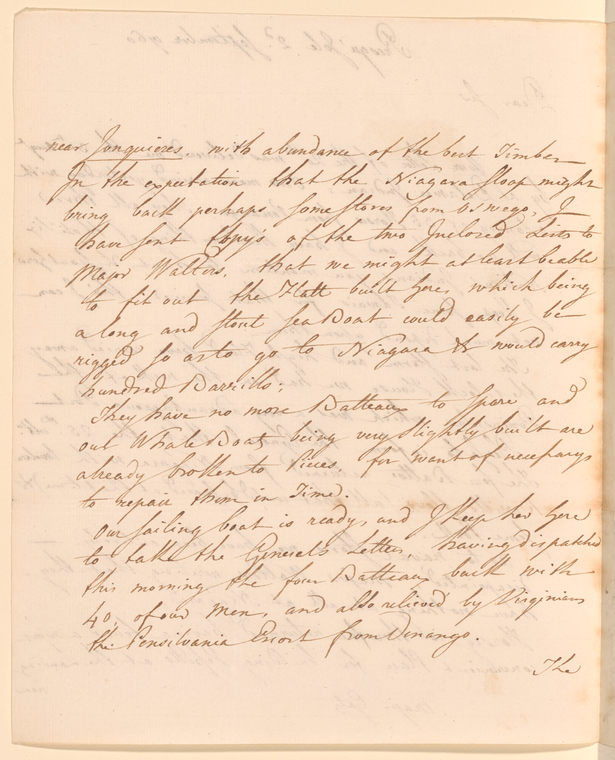 near Jonquieres with abundance of the best Timber
In the expectation that the Niagara Sloop might
bring back perhaps some stores from Oswego, I
have sent Copy's of the two Inclosed Lists to
Major Walters, that we might at least be able
to fit out the Flatt built here, which being
a long and stout sea Boat could easily be
rigged so as to go to Niagara & would carry
hundred Barrills;
They have no more Batteaus to spare and
our Whale Boats being very slightly built are
already broken to Pieces, for want of necessarys
to repair them in Time.
Our sailing boat is ready, and I keep her here
to take the Generals Letters, having dispatched
this morning the four Batteaus back with
40, of our Men, and also relieved by Virginians
the Pensilvania Escort from Venango.
The